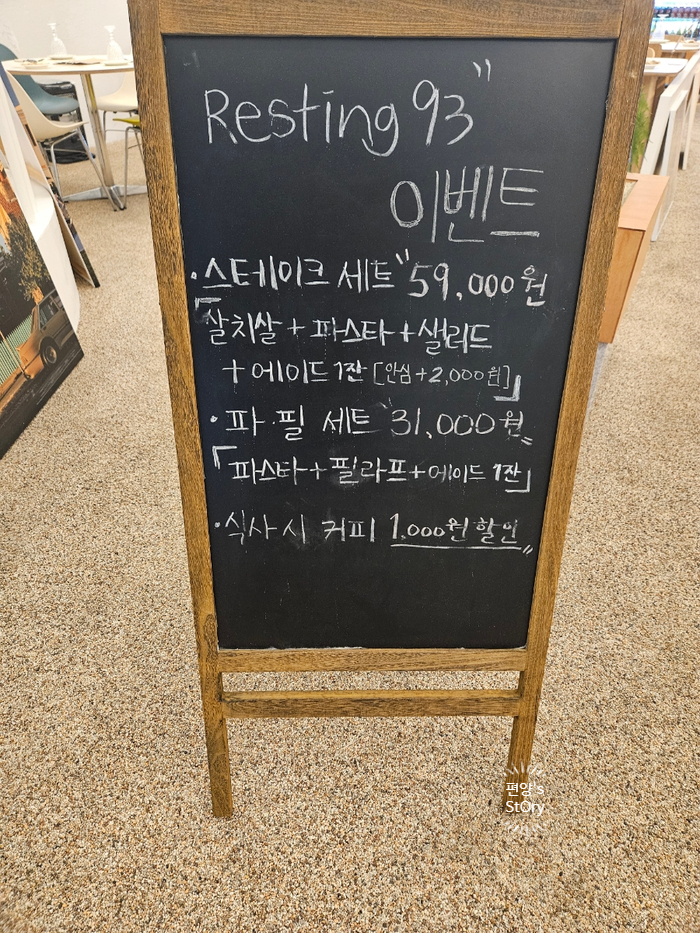 Resting 93"
이벤트
·스테이크 세트 "59,000원
「살치살 + 파스타 + 샐러드
+ 에이드 1잔 [안심+2,000원]」
·파·필 세트 "31,000원"
「파스타+필라프+에이드 1잔」
·식사 시 커피 1,000원 할인"
편양's
StOry